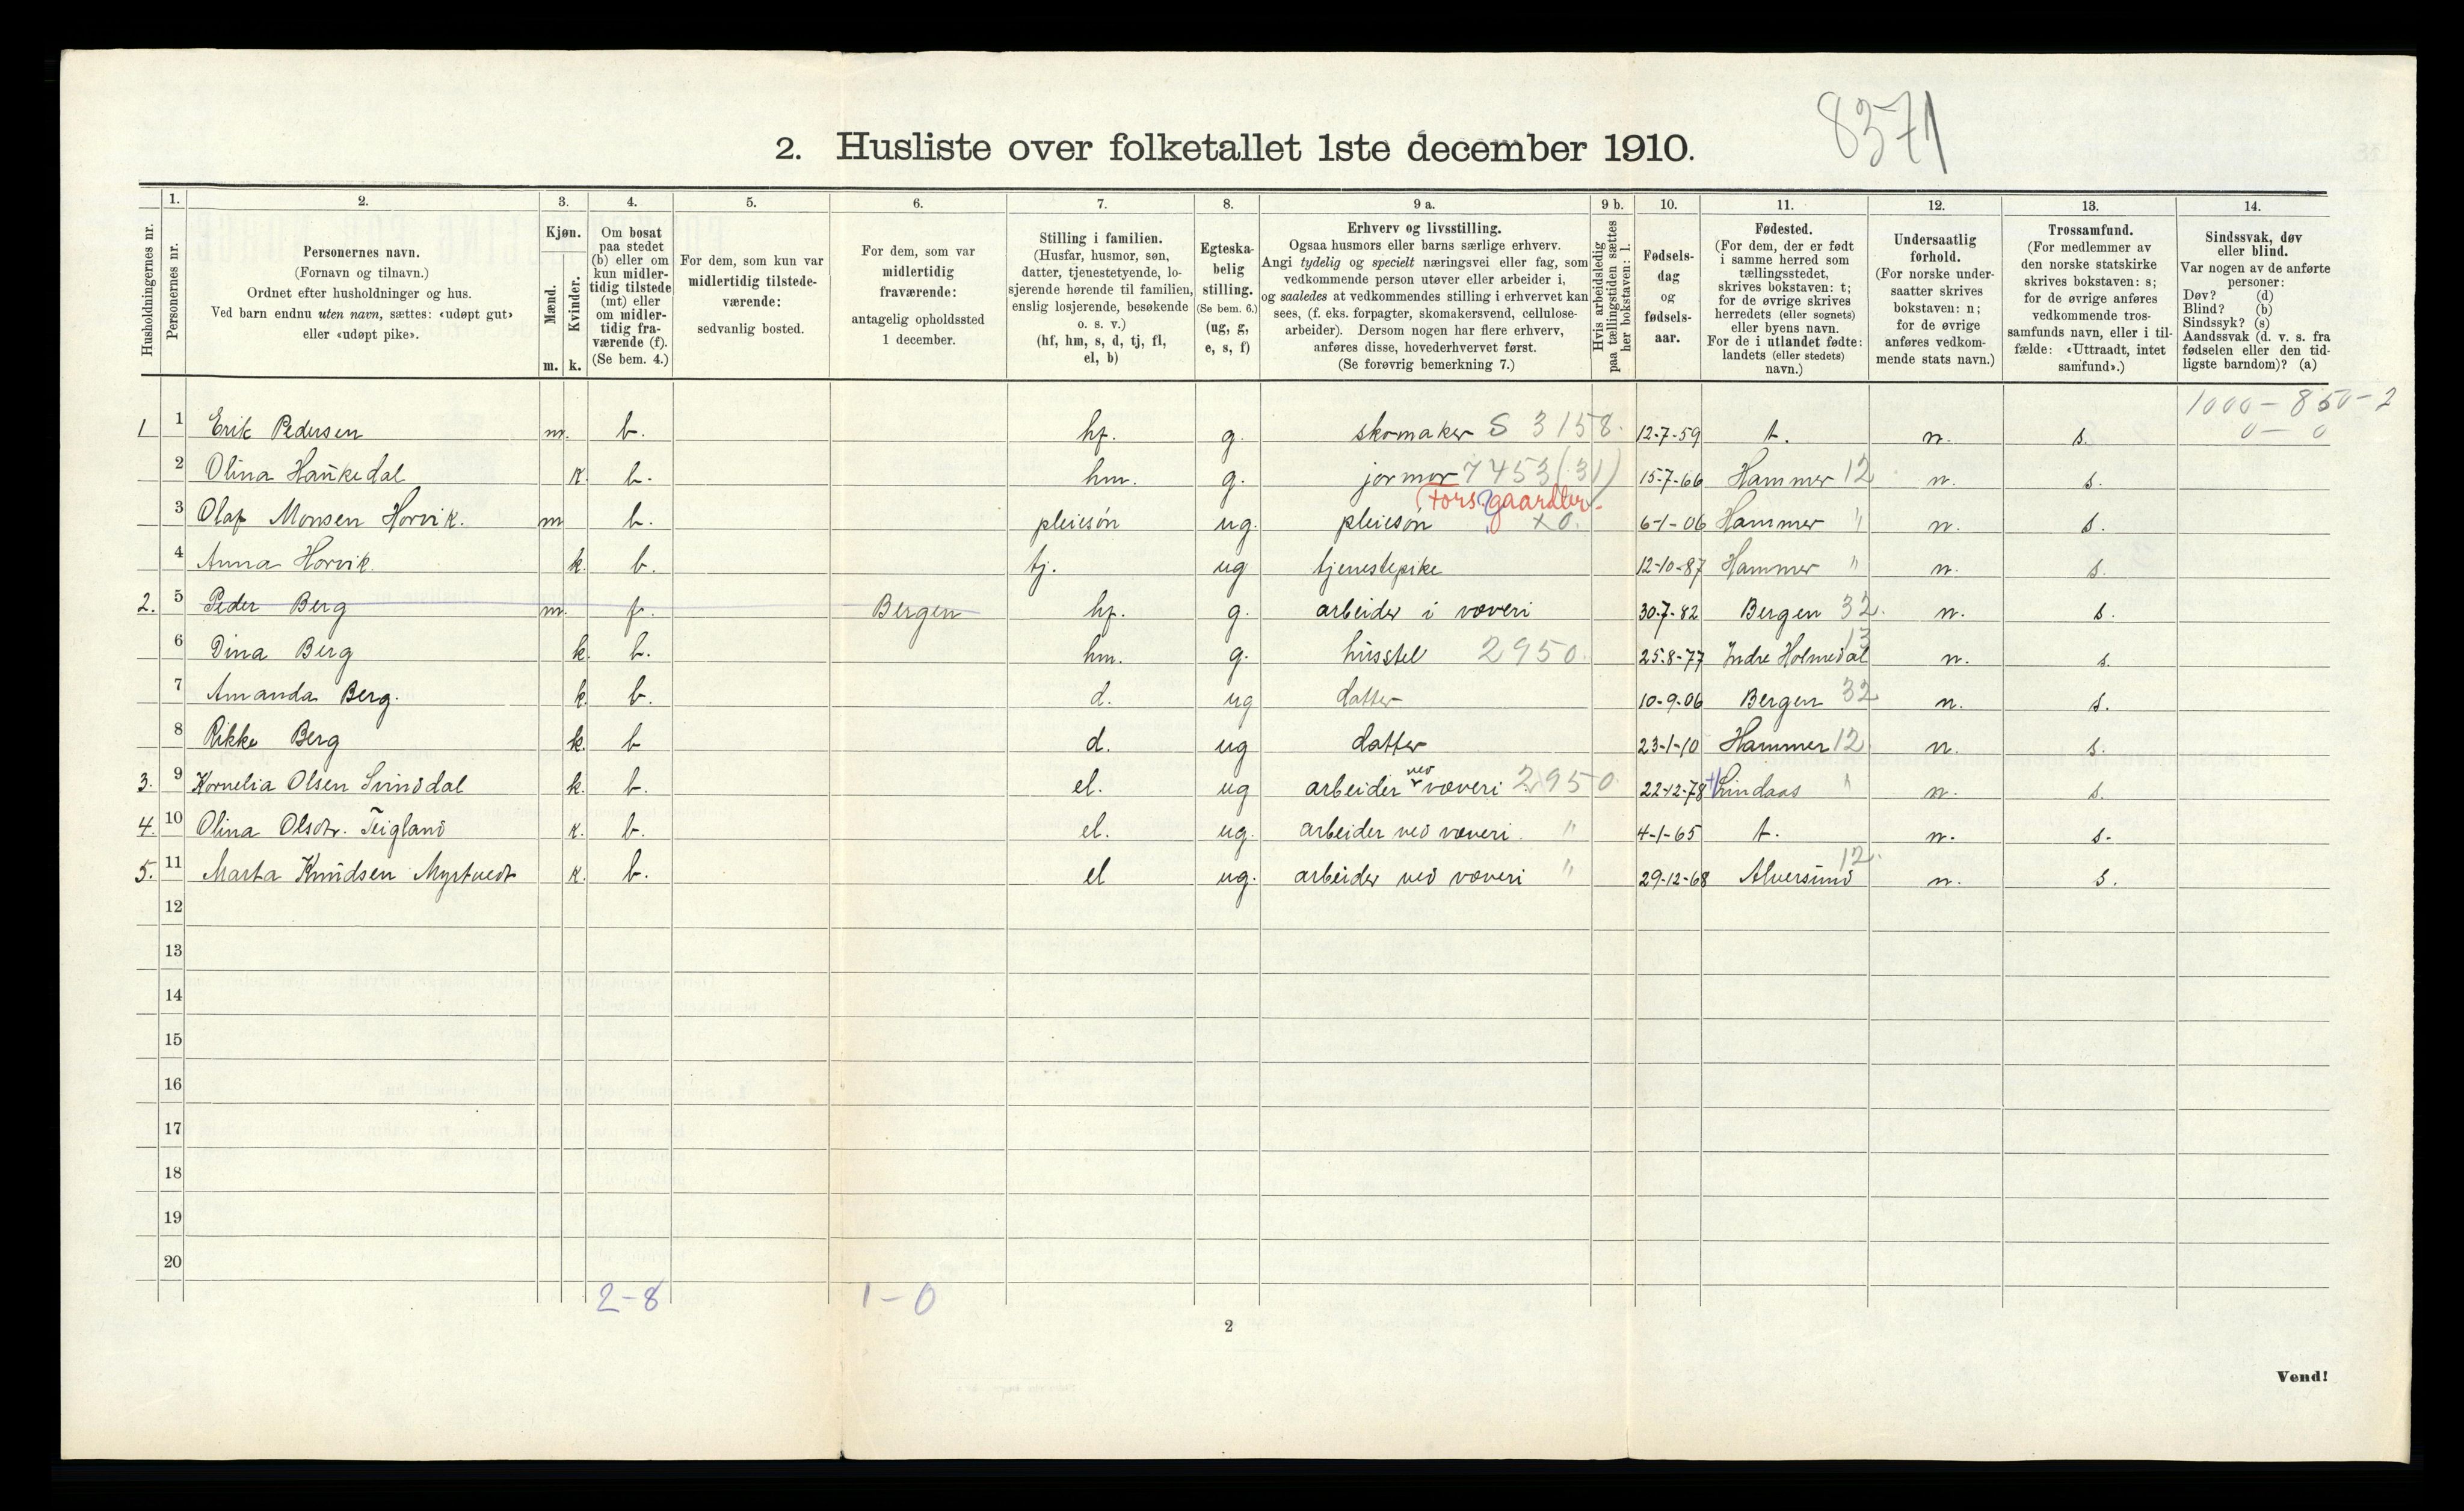 8371
2. Husliste over folketallet 1ste december 1910.
Husholdningernes nr.
1.
Personernes nr.
2.
Personernes navn.
(Fornavn og tilnavn.)
Ordnet efter husholdninger og hus.
Ved barn endnu uten navn, sættes: «udøpt gut»
eller «udøpt pike».
3.
Kjøn.
Mænd.
Kvinder.
m. k.
4.
Om bosat
paa stedet
(b) eller om
kun midler-
tidig tilstede
(mt) eller
om midler-
tidig fra-
værende (f).
(Se bem. 4.)
5.
For dem, som kun var
midlertidig tilstede-
værende:
sedvanlig bosted.
6.
For dem, som var
midlertidig
fraværende:
antagelig opholdssted
1 december.
7.
Stilling i familien.
(Husfar, husmor, søn,
datter, tjenestetyende, lo-
sjerende hørende til familien,
enslig losjerende, besøkende
o. s. v.)
(hf, hm, s, d, tj, fl,
el, b)
8.
Egteska-
belig
stilling.
(Se bem. 6.)
(ug, g,
e, s, f)
9 a.
Erhverv og livsstilling.
Ogsaa husmors eller barns særlige erhverv.
Angi tydelig og specielt næringsvei eller fag, som
vedkommende person utøver eller arbeider i,
og saaledes at vedkommendes stilling i erhvervet kan
sees, (f. eks. forpagter, skomakersvend, cellulose-
arbeider). Dersom nogen har flere erhverv,
anføres disse, hovederhvervet først.
(Se forøvrig bemerkning 7.)
9 b.
Hvis arbeidsledig
paa tællingstiden sættes
her bokstaven: l.
10.
Fødsels-
dag
og
fødsels-
aar.
11.
Fødested.
(For dem, der er født
i samme herred som
tællingsstedet,
skrives bokstaven: t;
for de øvrige skrives
herredets (eller sognets)
eller byens navn.
For de i utlandet fødte:
landets (eller stedets)
navn.)
12.
Undersaatlig
forhold.
(For norske under-
saatter skrives
bokstaven: n;
for de øvrige
anføres vedkom-
mende stats navn.)
13.
Trossamfund.
(For medlemmer av
den norske statskirke
skrives bokstaven: s;
for de øvrige anføres
vedkommende tros-
samfunds navn, eller i til-
fælde: «Uttraadt, intet
samfund».)
14.
Sindssvak, døv
eller blind.
Var nogen av de anførte
personer:
Døv? (d)
Blind? (b)
Sindssyk? (s)
Aandssvak (d. v. s. fra
fødselen eller den tid-
ligste barndom)? (a)
1000 - 850 - 2
0 - 0
1 1 Erik Pedersen m. b. hf. g. skomaker S 3158. 12-7-59 t. n. s.
2 Olina Haukedal k. b. hm. g. jormor 7453 (31) 15-7-66 Hammer 12 n. s.
3 Olaf Monsen Horvik. m b. pleiesøn ug. pleiesøn x0. 6-1-06 Hammer " n. s.
4 Anna Horvik k. b. tj. ug tjenestepike 12-10-87 Hammer " n. s.
2. 5 Peder Berg m. f. Bergen hf. g. arbeider i væveri 30-7-82 Bergen 32. n. s.
6 Dina Berg k. b. hm. g. husstel 2950. 25-8-77 Indre Holmedal 13 n. s.
7 Amanda Berg. k. b. d. ug datter 10-9-06 Bergen 32 n. s.
8 Rikke Berg k. b d. ug datter 23-1-10 Hammer 12 n. s.
3. 9 Kornelia Olsen Svindal k. b. el. ug arbeider ved væveri 2950 22-12-78 Lindaas " n. s.
4. 10 Olina Olsdtr. Teigland k. b. el. ug. arbeider ved væveri. " 4-1-65 t. n. s.
5. 11 Marta Knudsen Myrtvedt k. b. el ug. arbeider ved væveri " 29-12-68 Alversund 12. n. s.
12
13
14
15
16
17
18
19
20
2-8 1-0
2
Vend!